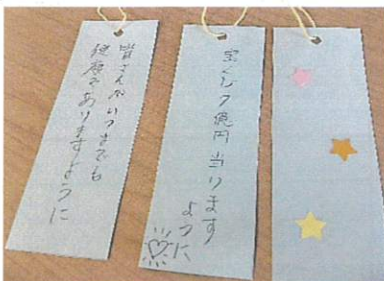 皆さんがいつまでも
健康でありますように
宝くじ7億円当ります
ように